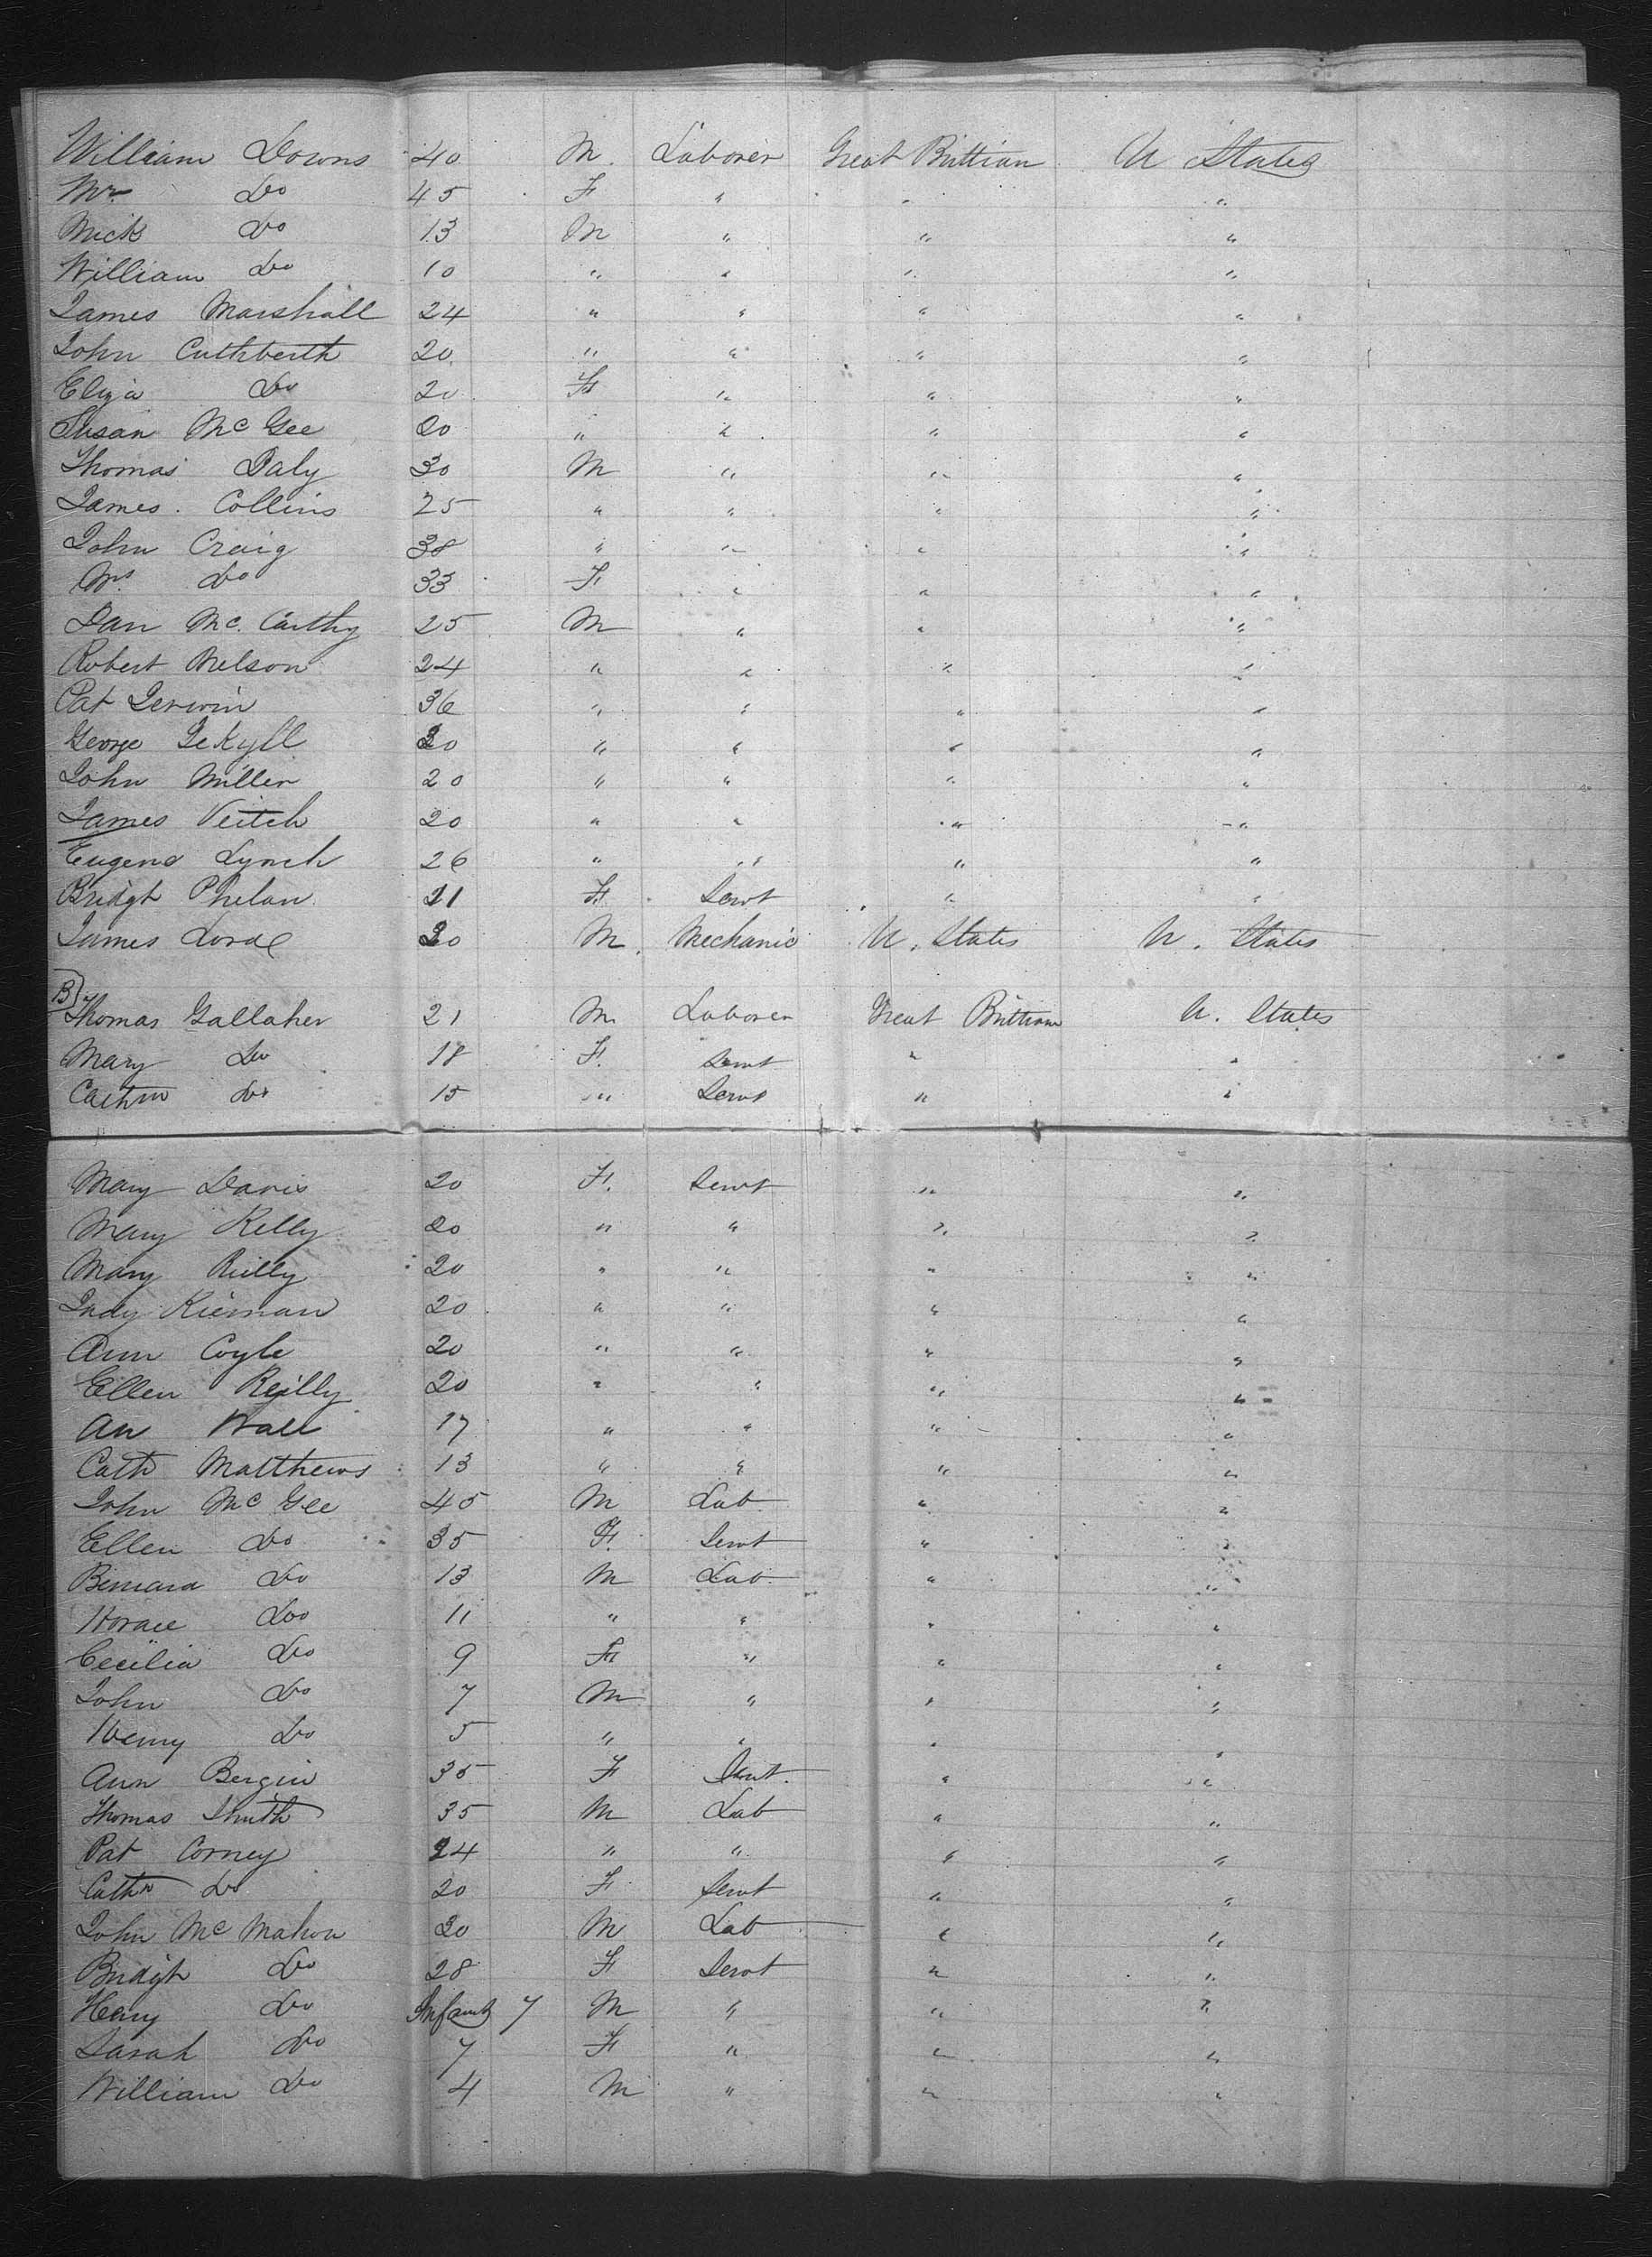 William Downs 40 M. Laborer Great Brittian U States
Mrs Do 45 F " " "
Mick Do 13 M " " "
William Do 10 " " " "
James Marshall 24 " " " "
John Cuthberth 20 " " " "
Eliza Do 20 F " " "
Susan Mc Gee 20 " " " "
Thomas Daly 30 M " " "
James Collins 25 " " " "
John Craig 38 " " " "
Mrs Do 33 F " " "
Dan Mc. Carthy 25 M " " "
Robert Nelson 24 " " " "
Pat Jerwin 36 " " " "
George Jekyll 20 " " " "
John Miller 20 " " " "
James Veitch 20 " " " "
Eugene Lynch 26 " " " "
Bridgt Phelan 21 F. Servt " "
James Lord 30 M. Mechanic U. States U. States
B)
Thomas Gallaher 21 M Laborer Great Brittian U. States
Mary Do 18 F. Servt " "
Cathn Do 15 " Servt " "
Mary Davis 20 F. Servt " "
Mary Kelly 20 " " " "
Mary Rielly 20 " " " "
Judy Kiernan 20 " " " "
Ann Coyle 20 " " " "
Ellen Reilly 20 " " " "
An Wall 17 " " " "
Cath Matthews 13 " " " "
John Mc Gee 45 M Lab " "
Ellen Do 35 F. Servt " "
Bernard Do 13 M Lab " "
Horace Do 11 " " " "
Cecilia Do 9 F " " "
John Do 7 M " " "
Henry Do 5 " " " "
Ann Bergin 35 F Servt. " "
Thomas Smith 35 M Lab " "
Pat Corney 24 " " " "
Cathn Do 20 F Servt " "
John Mc Mahon 30 M Lab " "
Bridgt Do 28 F Servt " "
Henry Do Infant 7 M " " "
Sarah Do 7 F " " "
William Do 4 M " " "